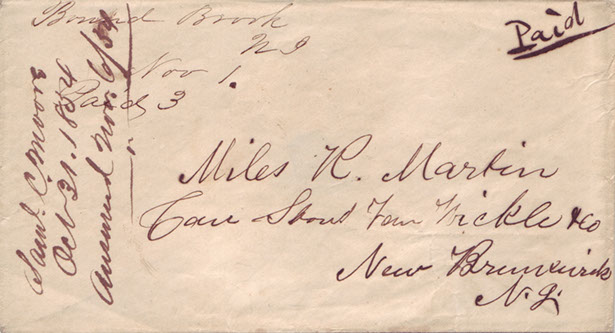 Bound Brook
NJ
Nov 1.
Paid 3
Paid
Miles K. Martin
Care Stout Van Wickle & Co
New Brunswick
N.J.
Saml. C. Moore
Oct 31. 1854
Answered Nov. 6/54